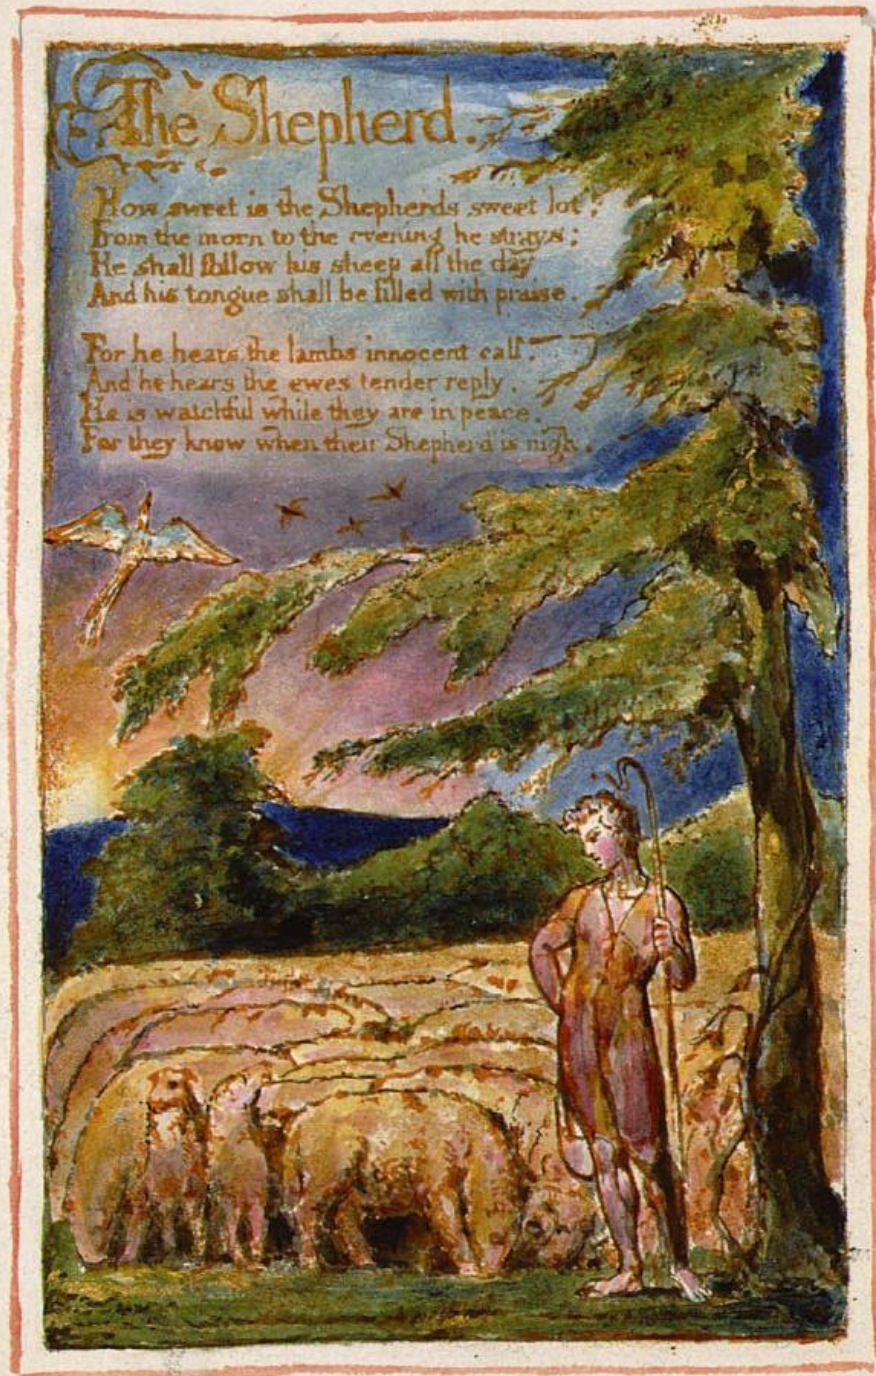 The Shepherd.
How sweet is the Shepherds sweet lot,
From the morn to the evening he strays:
He shall follow his sheep all the day
And his tongue shall be filled with praise.
For he hears the lambs innocent call.
And he hears the ewes tender reply.
He is watchful while they are in peace.
For they know when their Shepherd is nigh.